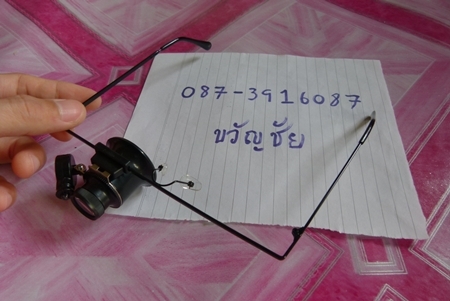 087-3916087
ขวัญชัย